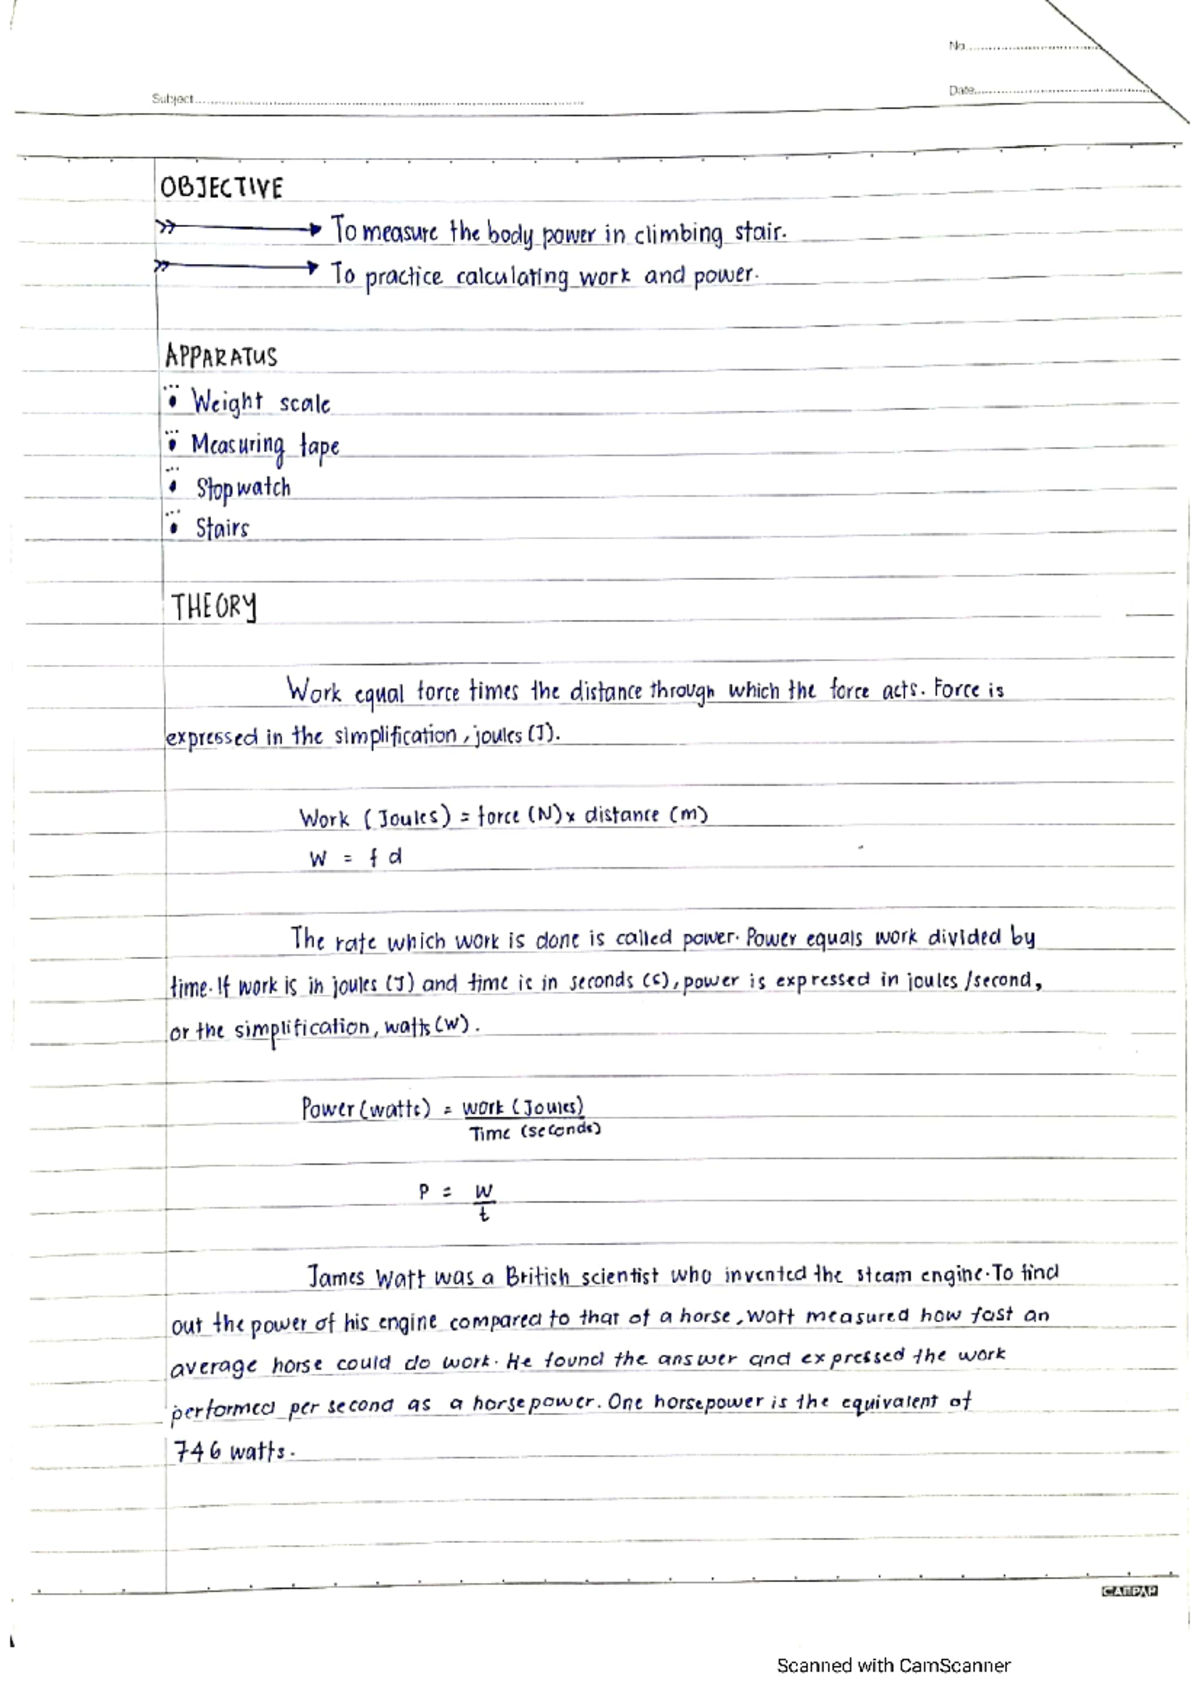 No.
Subject
Date
OBJECTIVE
To measure the body power in climbing stair.
To practice calculating work and power.
APPARATUS
Weight scale
Measuring tape
Stopwatch
Stairs
THEORY
Work equal force times the distance through which the force acts. Force is
expressed in the simplification, joules (J).
Work (Joules) = force (N) x distance (m)
W = f d
The rate which work is done is called power. Power equals work divided by
time. If work is in joules (J) and time is in seconds (s), power is expressed in joules /second,
or the simplification, watts (W).
Power (watts) = work (Joules)
Time (seconds)
P = W
t
James Watt was a British scientist who invented the steam engine. To find
out the power of his engine compared to that of a horse, Watt measured how fast an
average horse could do work. He found the answer and expressed the work
performed per second as a horsepower. One horsepower is the equivalent of
746 watts.
CAMPAP
Scanned with CamScanner